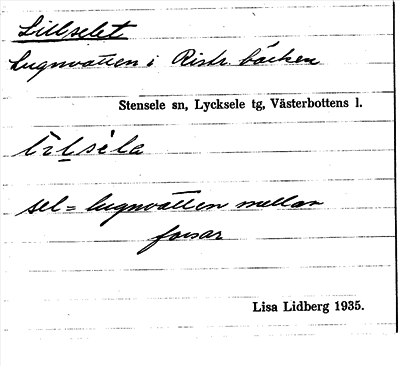 Lillselet
Lugnvatten i Ristr. bäcken
Stensele sn, Lycksele tg, Västerbottens l.
sel = lugnvatten mellan
forsar
Lisa Lidberg 1935.